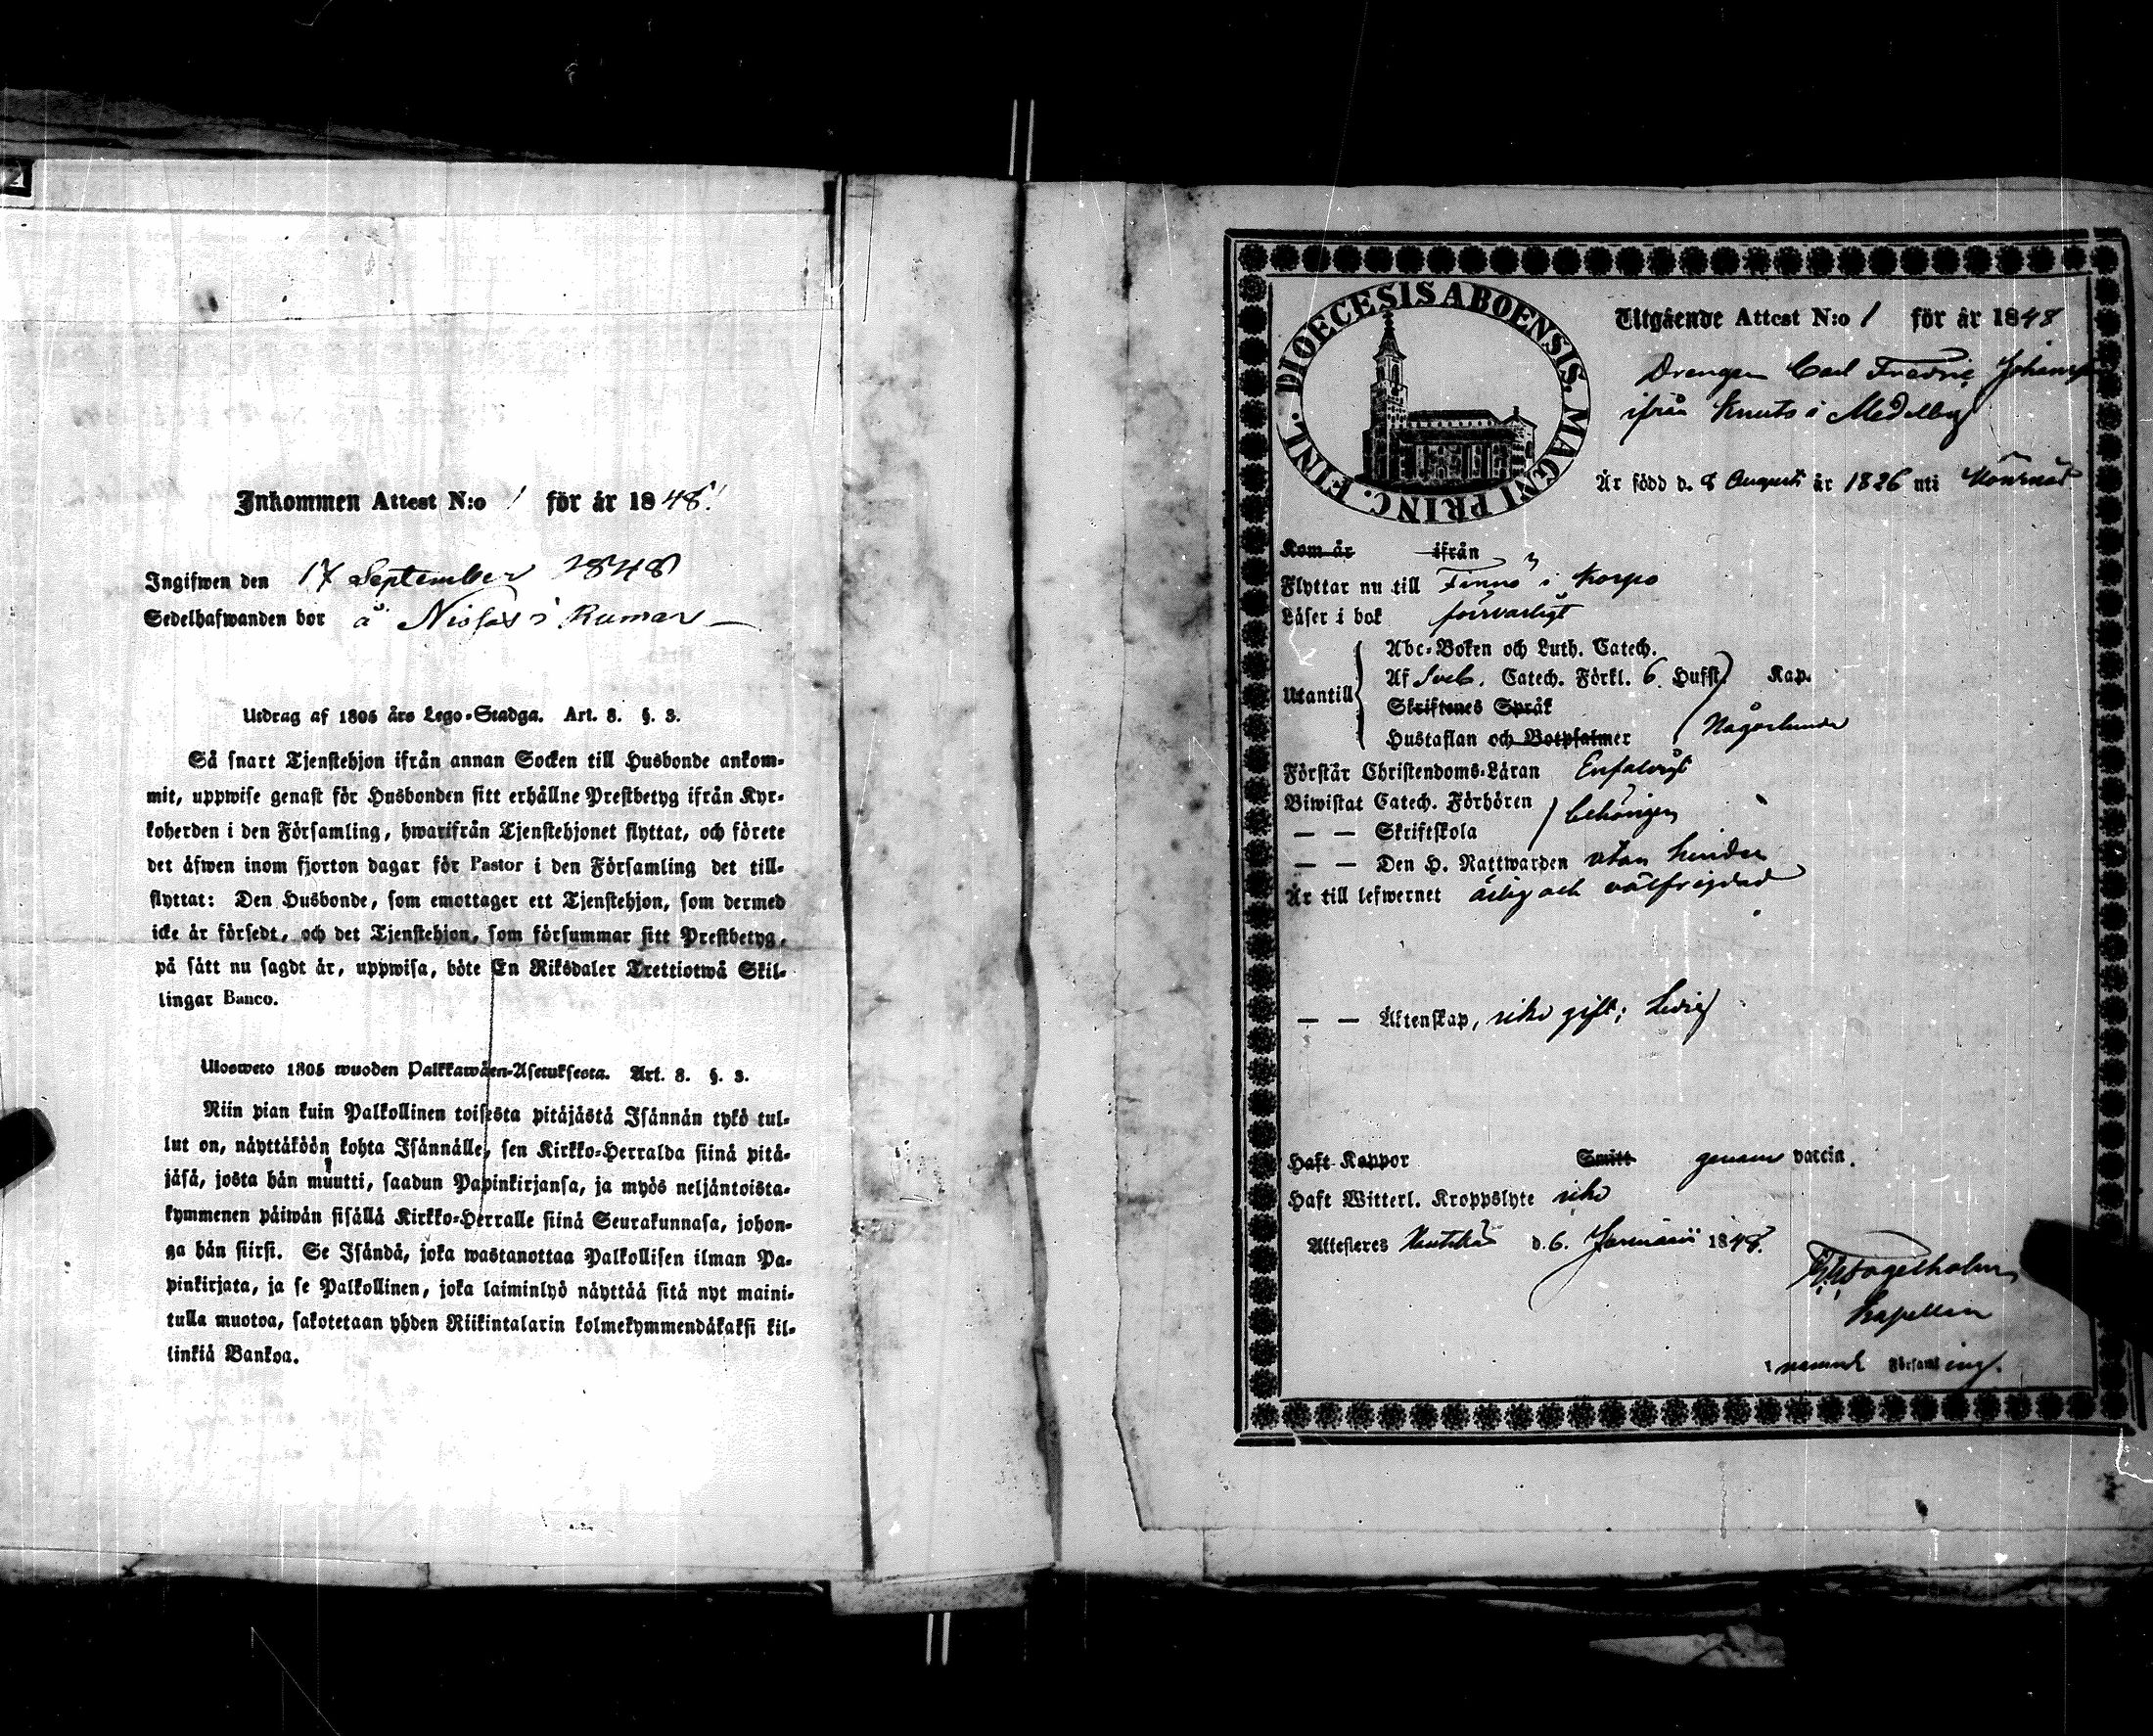 Inkommen Attest N:o 1 för år 1848.
Ingifwen den 17 September 1848
Sedelhafwanden bor å i Rumar
Utdrag af 1805 års Lego-Stadga. Art. 8. §. 3.
Så snart Tjenstehjon ifrån annan Socken till Husbonde ankom-
mit, uppwise genast för Husbonden sitt erhållne Prestbetyg ifrån Kyr-
koherden i den Församling, hwarifrån Tjenstehjonet flyttat, och förete
det äfwen inom fjorton dagar för Pastor i den Församling det till-
flyttat: Den Husbonde, som emottager ett Tjenstehjon, som dermed
icke är försedt, och det Tjenstehjon, som försummar sitt Prestbetyg,
på sätt nu sagdt är, uppwisa, böte En Riksdaler Trettiotwå Skil-
lingar Banco.
Ulosweto 1805 wuoden Palkkawäen-Asetuksesta. Art. 8. §. 3.
Niin pian kuin Palkollinen toisesta pitäjästä Isännän tykö tul-
lut on, näyttäköön kohta Isännälle, sen Kirkko-Herralda siinä pitä-
jäsä, josta hän muutti, saadun Papinkirjansa, ja myös neljäntoista-
kymmenen päiwän sisällä Kirkko-Herralle siinä Seurakunnasa, johon-
ga hän siirsi. Se Isändä, joka wastanottaa Palkollisen ilman Pa-
pinkirjata, ja se Palkollinen, joka laiminlyö näyttää sitä nyt maini-
tulla muotoa, sakotetaan yhden Riikintalarin kolmekymmendäkaksi kil-
linkiä Bankoa.
DIOECESIS ABOENSIS MAGNI PRINC. FINL.
Utgående Attest N:o 1 för år 1848
Drengen Carl Fredric Johansson
ifrån Knuts i Medelby
Är född d. 8 Augusti år 1826 uti
Kom år ifrån
Flyttar nu till Finnö i Korpo
Läser i bok försvarligt
Utantill
Abc-Boken och Luth. Catech.
Af Sveb. Catech. Förkl. 6 Hufst. Kap.
Skriftenes Språk
Hustaflan och Botpsalmer Någorlunda
Förstår Christendoms-Läran Enfaldigt
Biwistat Catech. Förhören behörigen
— — Skriftskola
— — Den H. Nattwarden utan hinder
Är till lefwernet ärlig och välfrejdad
— — Äktenskap, icke gift; ledig
Haft Koppor Smitt genom vaccin.
Haft Witterl. Kroppslyte icke
Attesteres d. 6. Januarii 1848.
Fogelholm
Kapellan
i nämnde Församling.